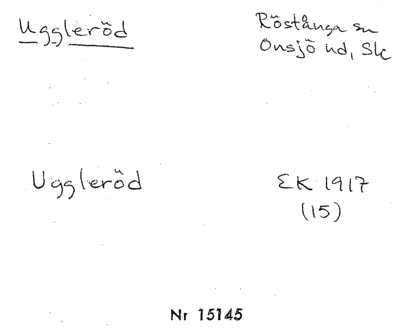 Uggleröd
Röstånga sn
Onsjö hd, Sk
Uggleröd
EK 1917
(15)
Nr 15145